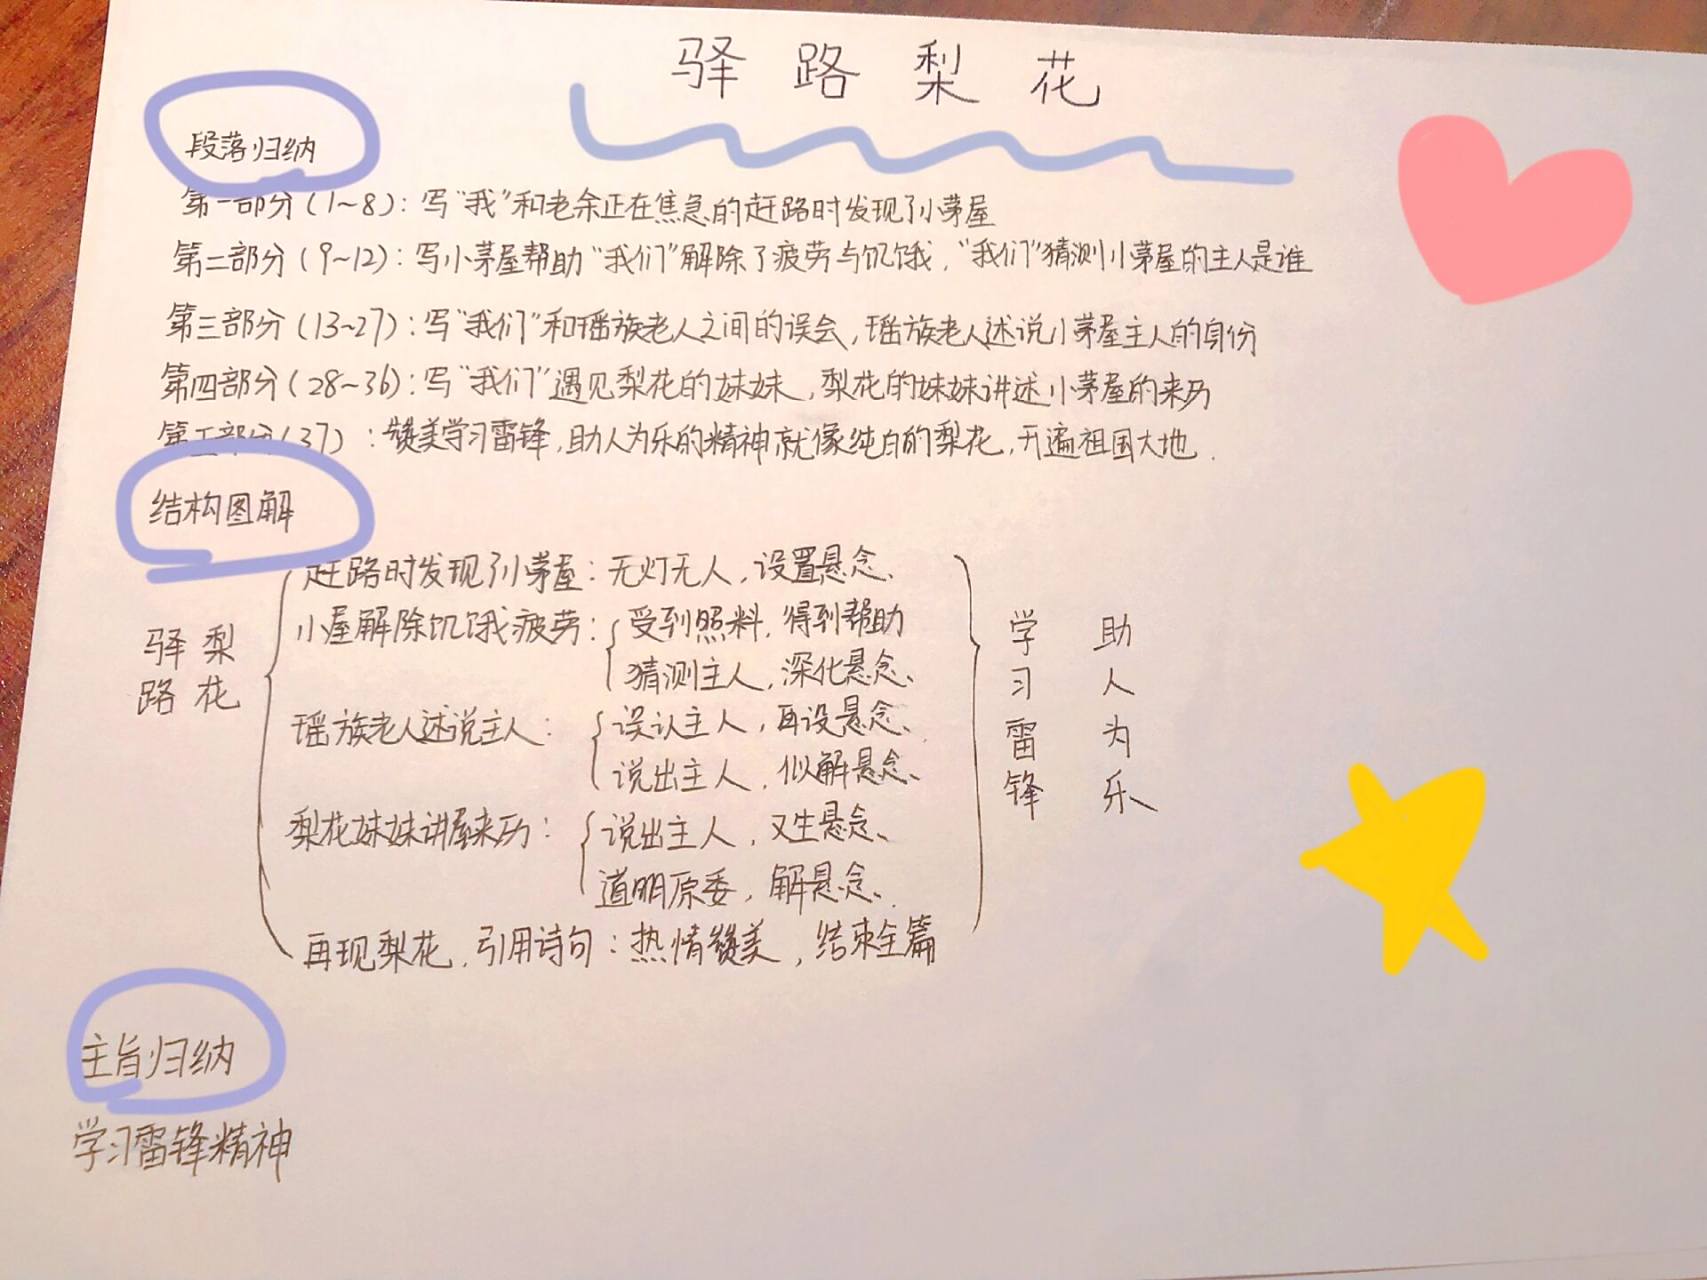 驿路梨花
段落归纳
第一部分(1~8):写“我”和老余正在焦急的赶路时发现了小茅屋
第二部分(9~12):写小茅屋帮助“我们”解除了疲劳与饥饿,“我们”猜测小茅屋的主人是谁
第三部分(13~27):写“我们”和瑶族老人之间的误会,瑶族老人述说小茅屋主人的身份
第四部分(28~36):写“我们”遇见梨花的妹妹,梨花的妹妹讲述小茅屋的来历
第五部分(37):赞美学习雷锋,助人为乐的精神就像纯白的梨花,开遍祖国大地.
结构图解
驿路
梨花
赶路时发现了小茅屋:无灯无人,设置悬念、
小屋解除饥饿疲劳:受到照料,得到帮助
猜测主人,深化悬念、
瑶族老人述说主人:误认主人,再设悬念、
说出主人,似解悬念、
梨花妹妹讲屋来历:说出主人,又生悬念、
道明原委,解悬念、
再现梨花,引用诗句:热情赞美,结束全篇
学习雷锋
助人为乐
主旨归纳
学习雷锋精神